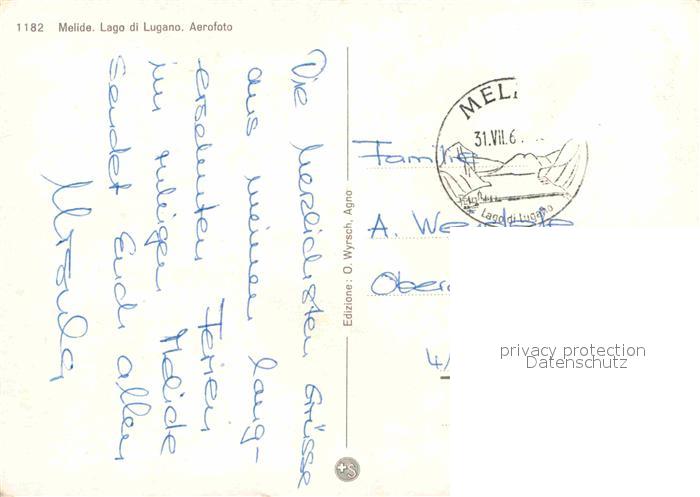 1182 Melide. Lago di Lugano. Aerofoto
Die herzlichsten Grüsse
aus meinen lang-
ersehnten Ferien
im ruhigen Melide
sendet Euch allen
Ursula
Edizione: O. Wyrsch, Agno
MELI
31.VII.6
Lago di Lugano
Familie
A. We
Ober
4/
+S
privacy protection
Datenschutz